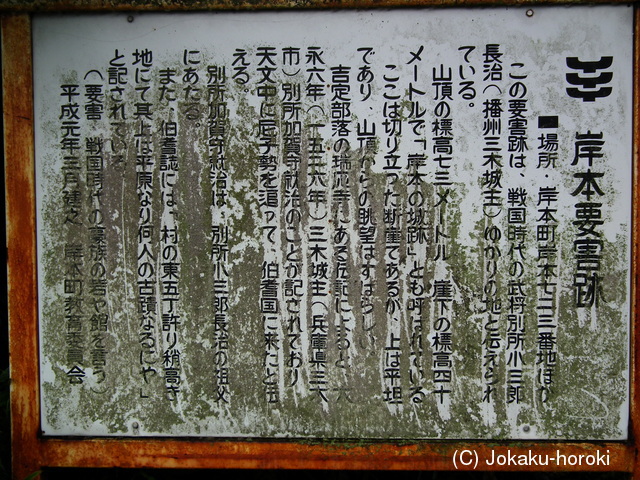 岸本要害跡
■場所・岸本町岸本七二三番地ほか
この要害跡は、戦国時代の武将別所小三郎
長治(播州三木城主)ゆかりの地と伝えられ
ている。
山頂の標高七三メートル 崖下の標高四十
メートルで「岸本の城跡」とも呼ばれている
ここは切り立った断崖であるが、上は平坦
であり、山頂からの眺望はすばらしい
吉定部落の瑞応寺にある 記によると、大
永六年(一五二六年)三木城主(兵庫県三木
市)別所加賀守就治のことが記されており
天文中に尼子勢を追って、伯耆国に来たと伝
える。
別所加賀守就治は、別所小三郎長治の祖父
にあたる。
また、伯耆誌には、村の東五丁許り稍高き
地にて其上は平原なり何人の古蹟なるにや」
と記されている
(要害 戦国時代の豪族の砦や館を言う)
平成元年三月建之 岸本町教育委員会
(C) Jokaku-horoki